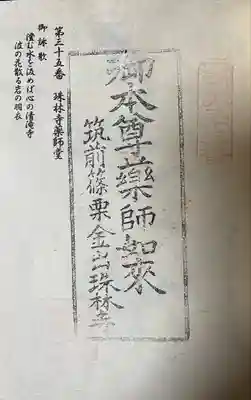 第三十五番　珠林寺薬師堂
御詠歌
澄む水を汲めば心の清滝寺
波の花散る岩の羽衣
御本尊薬師如来
筑前篠栗金出珠林寺